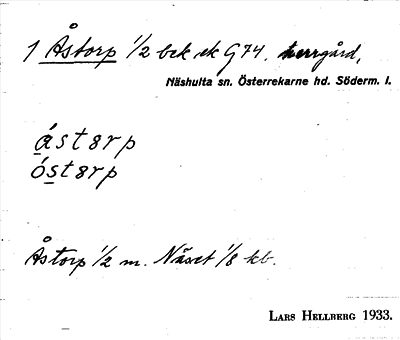 1 Åstorp 1/2 bek ek G74. herrgård,
Näshulta sn. Österrekarne hd. Söderm. l.
ástərp
óstərp
Åstorp 1/2 m. Näset 1/8 kb.
LARS HELLBERG 1933.